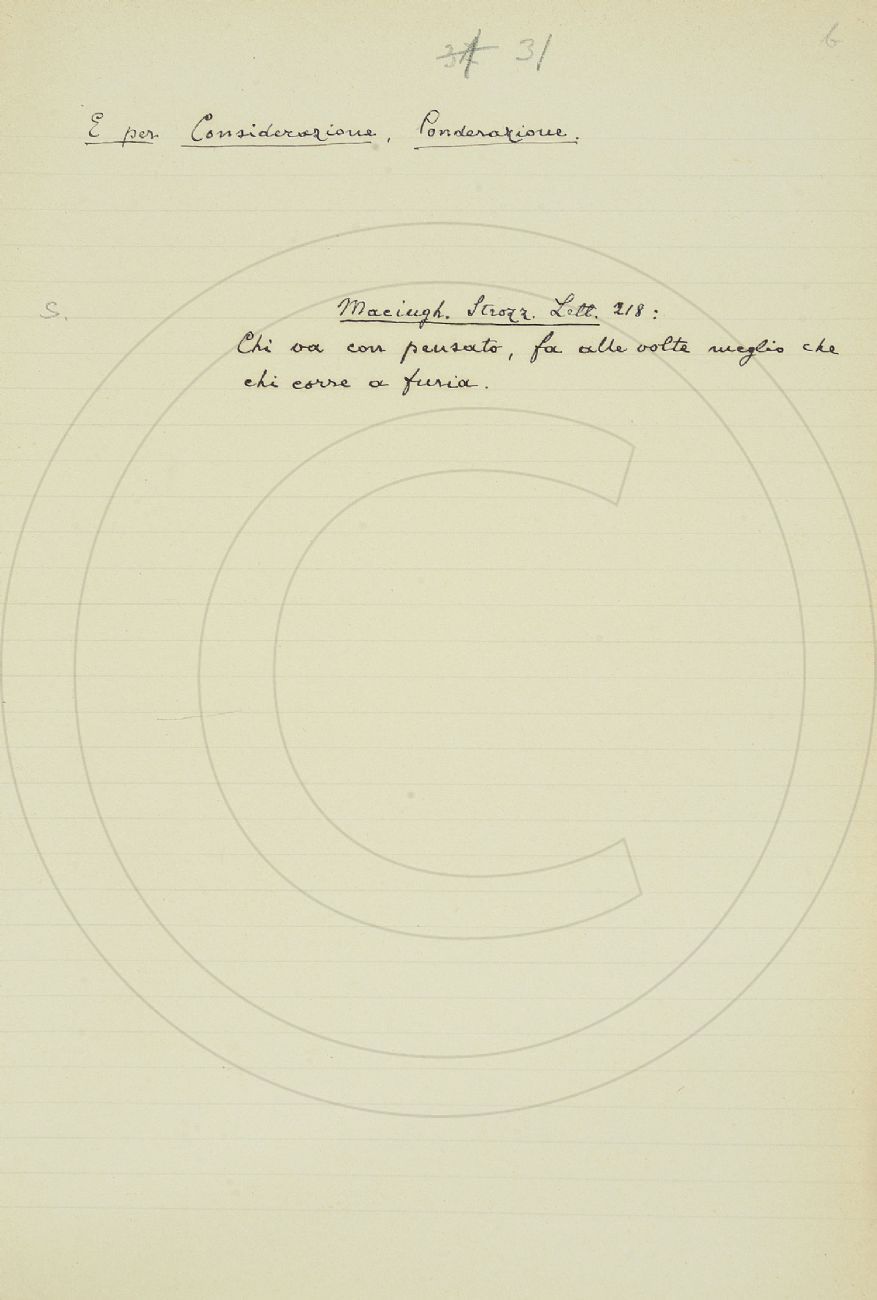 31 6
E per Considerazione, Ponderazione.
S. Macingh. Strozz. Lett. 218:
Chi va con pensato, fa alle volte meglio che
chi corre a furia.